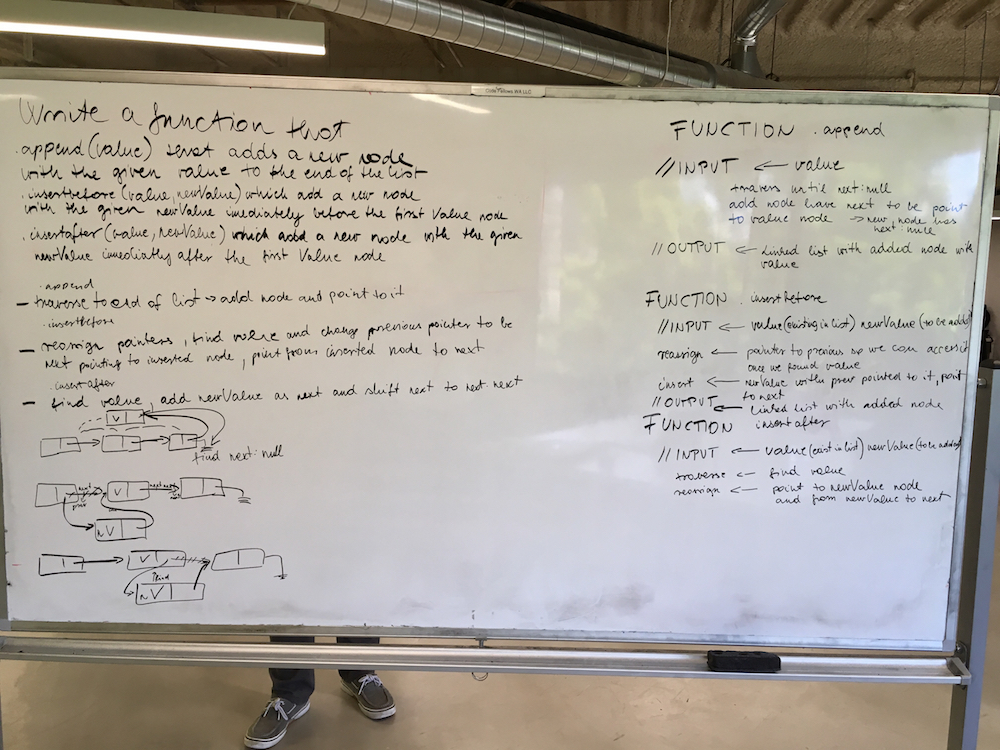 Write a function that
.append(value) that adds a new node
with the given value to the end of the list
.insertbefore (value, newValue) which add a new node
with the given newValue imediately before the first Value node
.insertafter (value, newValue) which add a new node with the given
newValue immediatly after the first Value node
.append
- traverse to end of list → add node and point to it
.insertbefore
- reassign pointers, find value and change previous pointer to be
next pointing to inserted node, point from inserted node to next
.insertafter
- find value, add newValue as next and shift next to next.next
V
find next:null
next
V
next
prev
nV
V
find
nV
FUNCTION .append
//INPUT ← value
travers until next:null
add node have next to be point
to value node → new node has
next:null
//OUTPUT ← Linked list with added node with
value
FUNCTION .insertbefore
//INPUT ← value(existing in list) newValue (to be added)
reassign ← pointer to previous so we can access it
once we found value
insert ← newValue with prev pointed to it, point
to next
//OUTPUT ← Linked list with added node
FUNCTION insertafter
//INPUT ← value(exist in list) newValue (to be added)
traverse ← find value
reassign ← point to newValue node
and from newValue to next